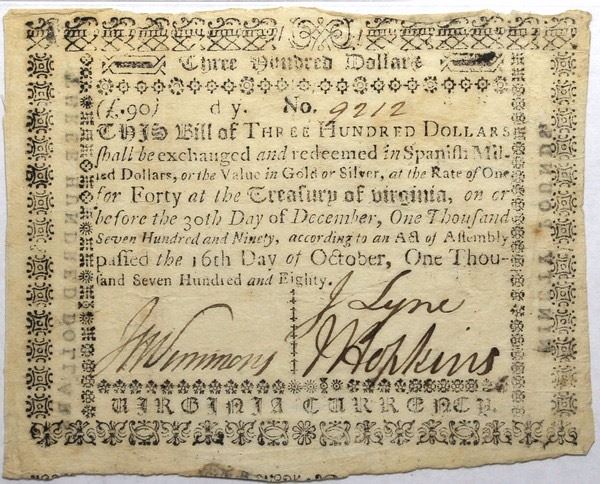 Three Hundred Dollars
(£.90) d y. No. 9212
THIS Bill of THREE HUNDRED DOLLARS
ſhall be exchanged and redeemed in Spaniſh Mil-
led Dollars, or the Value in Gold or Silver, at the Rate of One
for Forty at the Treaſury of Virginia, on or
before the 30th Day of December, One Thouſand
Seven Hundred and Ninety, according to an Act of Aſſembly
paſſed the 16th Day of October, One Thou-
ſand Seven Hundred and Eighty.
J Lyne
J Hopkins
VIRGINIA CURRENCY.
THREE HUNDRED DOLLAR